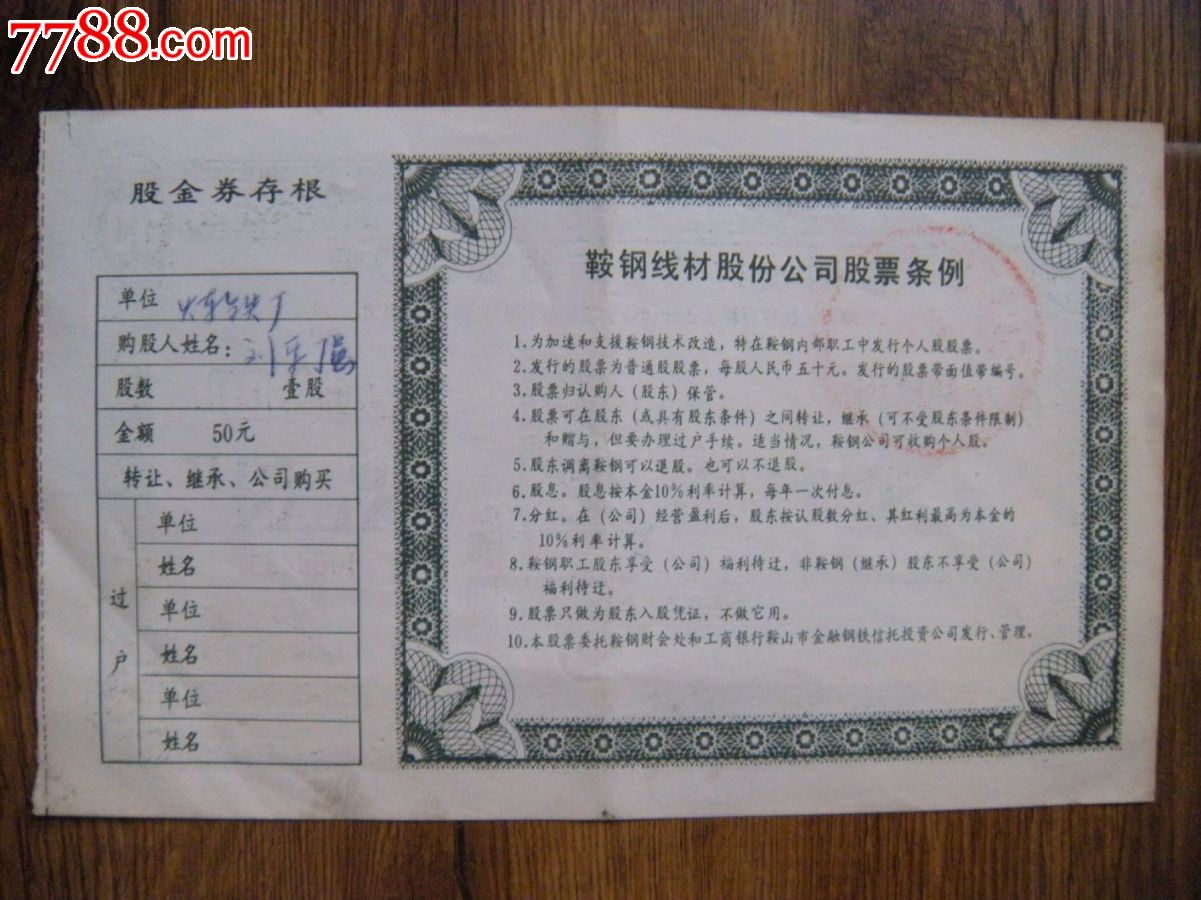 7788.com
股金券存根
单位
购股人姓名：
股数 壹股
金额 50元
转让、继承、公司购买
过户
单位
姓名
单位
姓名
单位
姓名
鞍钢线材股份公司股票条例
1.为加速和支援鞍钢技术改造，特在鞍钢内部职工中发行个人股股票。
2.发行的股票为普通股股票，每股人民币五十元。发行的股票带面值带编号。
3.股票归认购人（股东）保管。
4.股票可在股东（或具有股东条件）之间转让，继承（可不受股东条件限制）
和赠与，但要办理过户手续。适当情况，鞍钢公司可收购个人股。
5.股东调离鞍钢可以退股。也可以不退股。
6.股息。股息按本金10%利率计算，每年一次付息。
7.分红。在（公司）经营盈利后，股东按认股数分红、其红利最高为本金的
10%利率计算。
8.鞍钢职工股东享受（公司）福利待迂，非鞍钢（继承）股东不享受（公司）
福利待迂。
9.股票只做为股东入股凭证，不做它用。
10.本股票委托鞍钢财会处和工商银行鞍山市金融钢铁信托投资公司发行、管理。